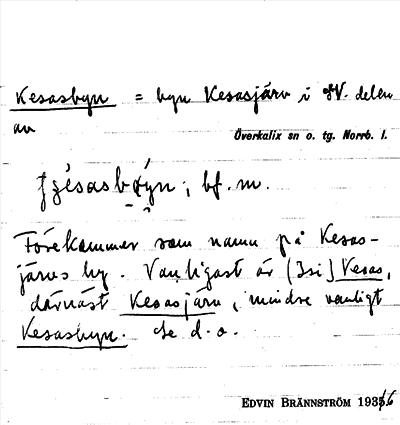 Kesasbyn = byn Kesasjärv i SV. delen
av
Överkalix sn o. tg. Norrb. l.
bf. m.
Förekommer som namn på Kesas-
järvs by. Vanligast är (Isi) Kesas,
därnäst Kesasjärv, mindre vanligt
Kesasbyn. Se d. o.
EDVIN BRÄNNSTRÖM 1936